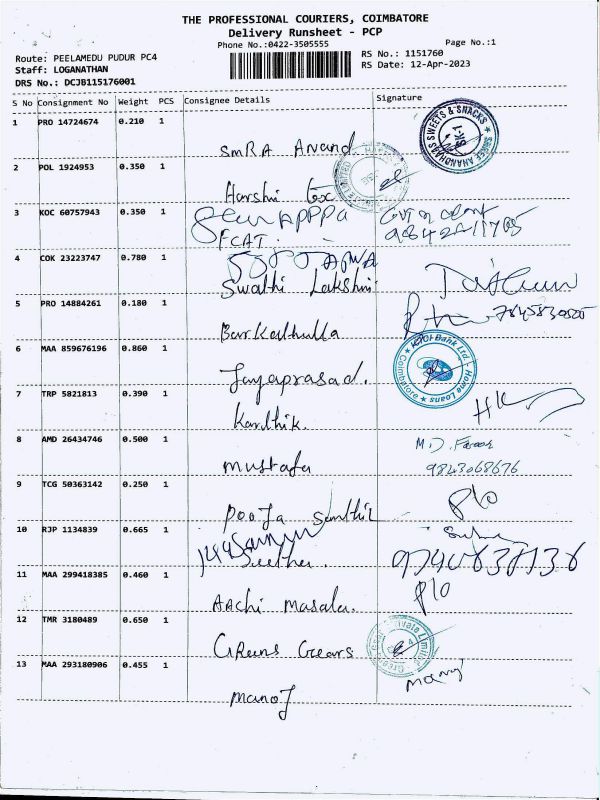 THE PROFESSIONAL COURIERS, COIMBATORE
Delivery Runsheet - PCP
Phone No.:0422-3505555
Page No.:1
Route: PEELAMEDU PUDUR PC4
RS No.: 1151760
Staff: LOGANATHAN
RS Date: 12-Apr-2023
DRS No.: DCJB115176001
S No Consignment No Weight PCS Consignee Details Signature
1 PRO 14724674 0.210 1
SMRA Anand
SWEETS & SNACKS
2 POL 1924953 0.350 1
Harshi Tex
3 KOC 60757943 0.350 1
FCAT.
4 COK 23223747 0.780 1
Swathi Lakshmi
5 PRO 14884261 0.180 1
Barkathulla
7845830505
6 MAA 859676196 0.860 1
Jayaprasad.
ICICI Bank Ltd., Home Loans
Coimbatore
7 TRP 5821813 0.390 1
Karthik.
HK
8 AMD 26434746 0.500 1
Mustafa
M.D. Farook
9843068676
9 TCG 50363142 0.250 1
Pooja Senthil
P/o
10 RJP 1134839 0.665 1
Seetha.
9740638138
11 MAA 299418385 0.460 1
AAchi Masala.
P/o
12 TMR 3180489 0.650 1
GReens Gears
Private Limited
13 MAA 293180906 0.455 1
Manoj
Manoj